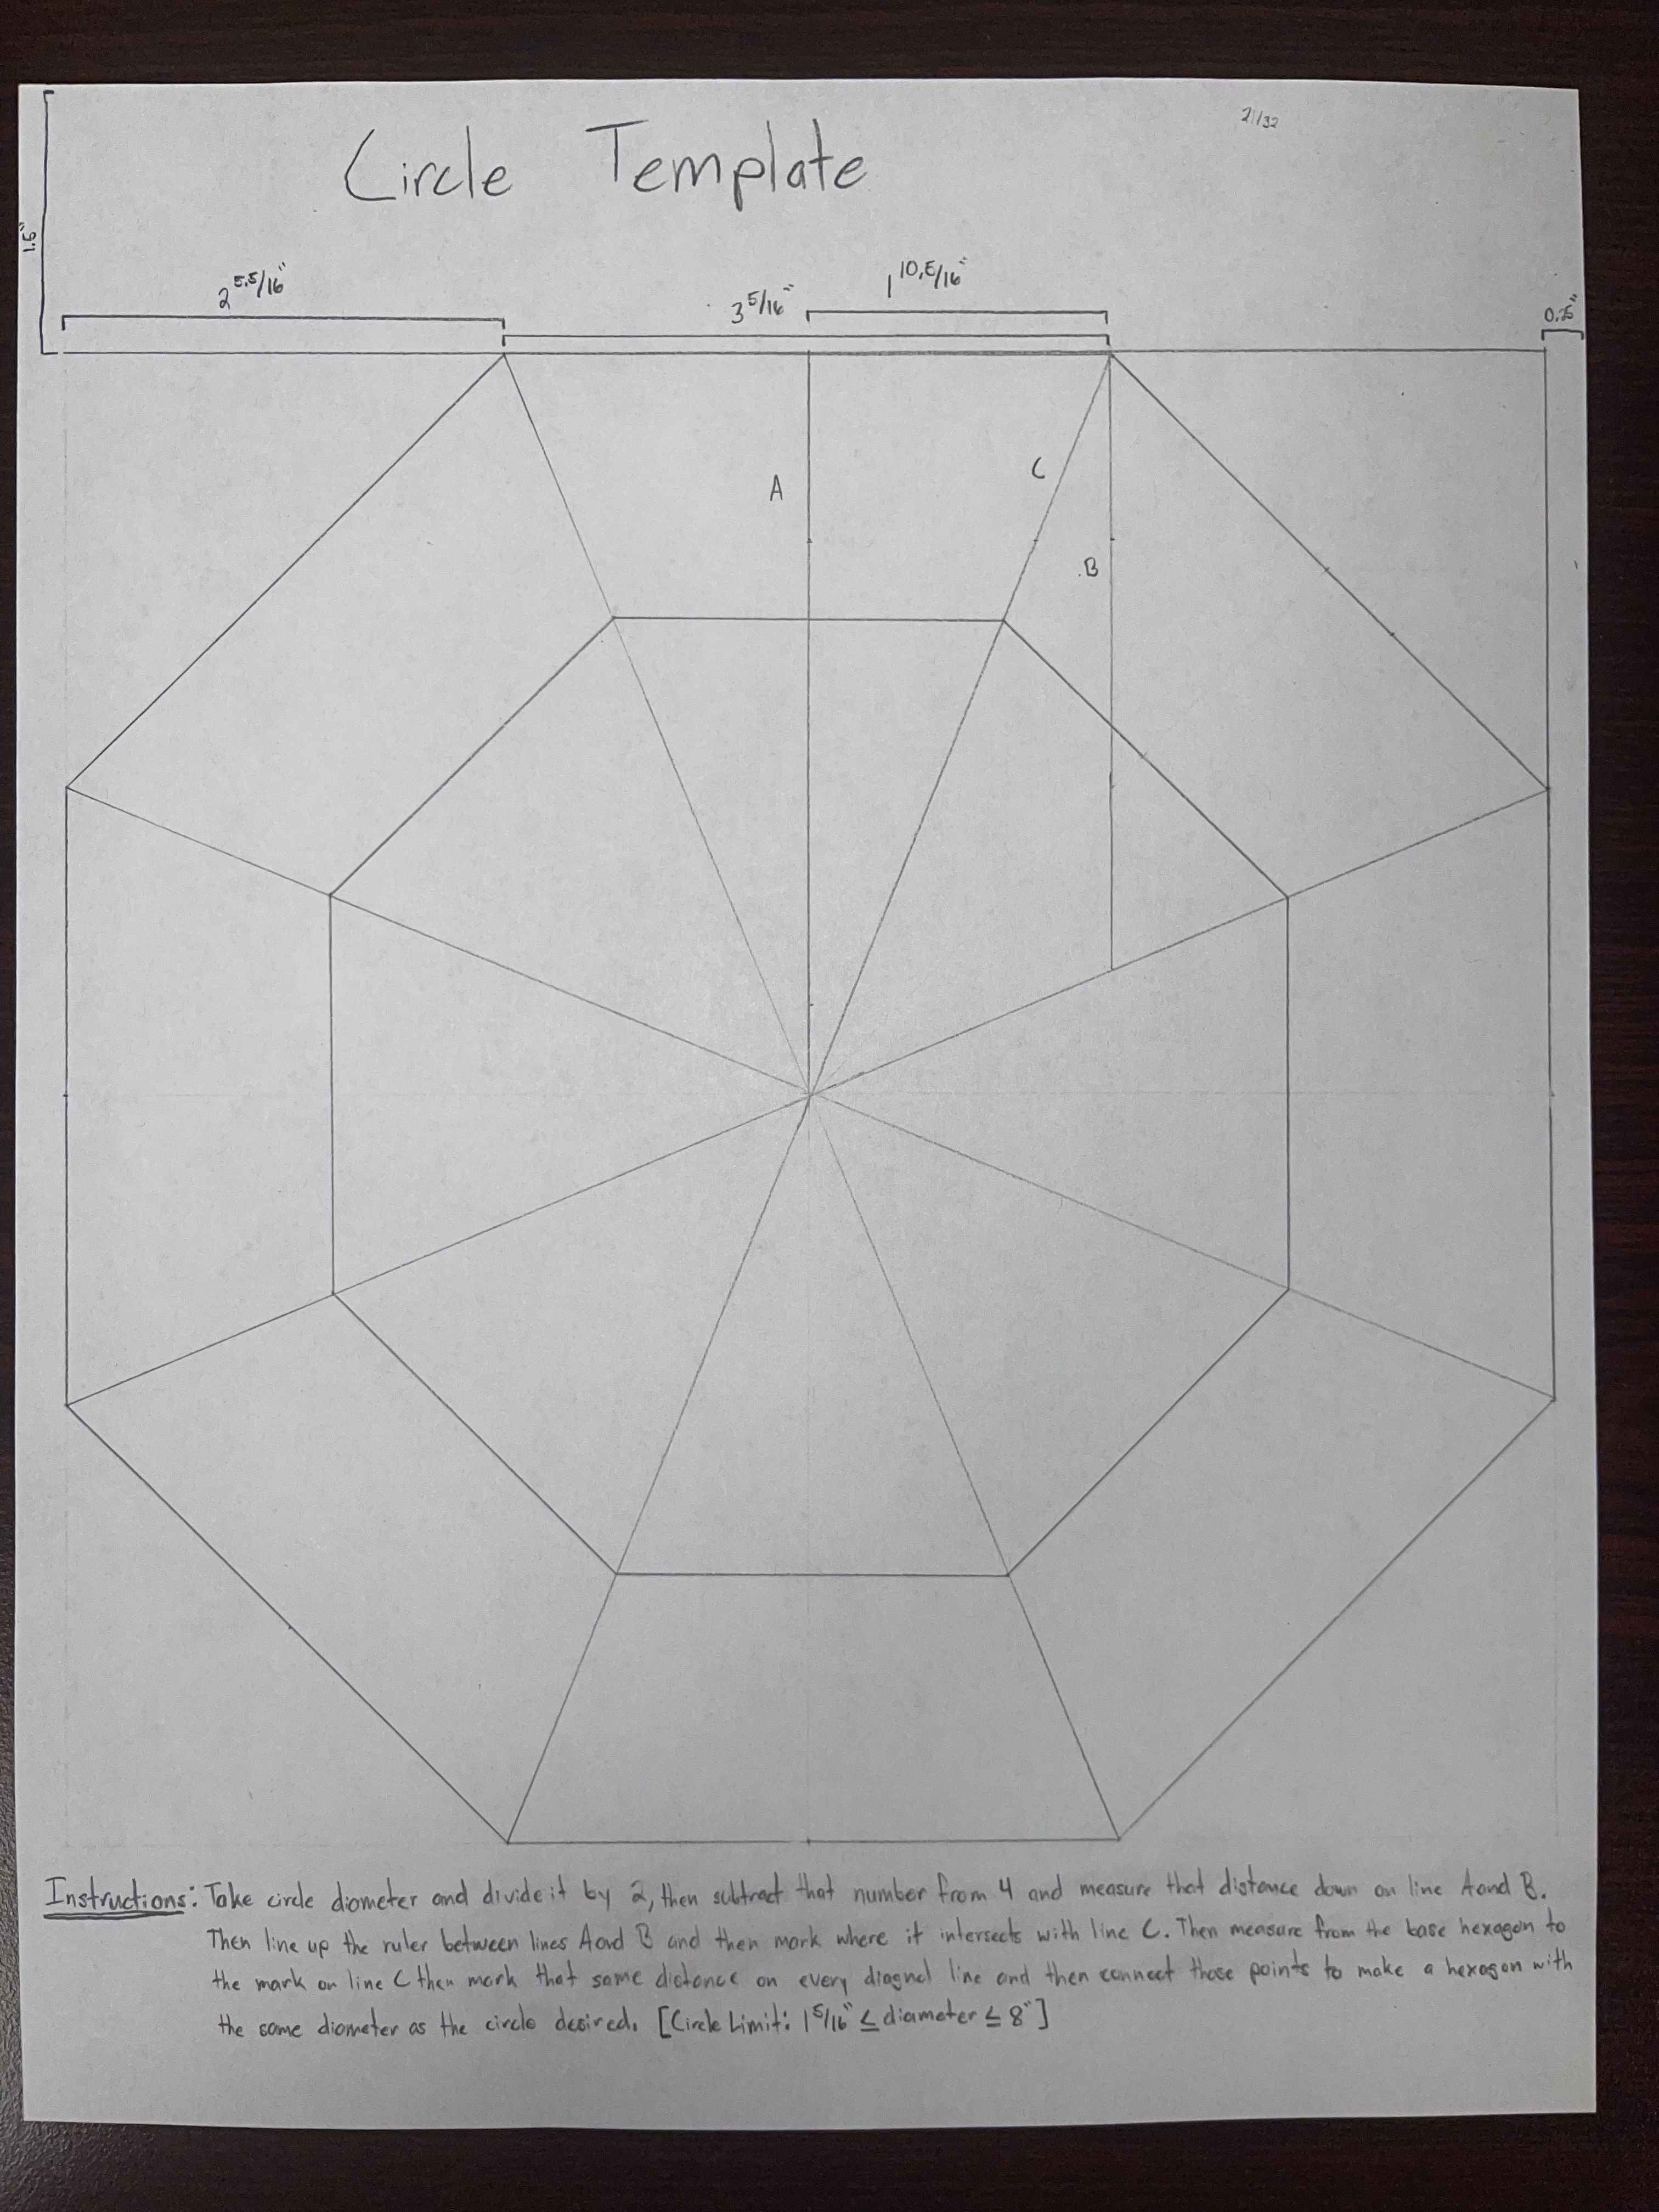 21/32
Circle Template
1.5"
2 5.5/16"
3 5/16"
1 10.5/16"
0.25"
A
C
B
Instructions: Take circle diameter and divide it by 2, then subtract that number from 4 and measure that distance down on line A and B.
Then line up the ruler between lines A and B and then mark where it intersects with line C. Then measure from the base hexagon to
the mark on line C then mark that same distance on every diagnel line and then connect those points to make a hexagon with
the same diameter as the circle desired. [Circle Limit: 1 5/16" ≤ diameter ≤ 8"]